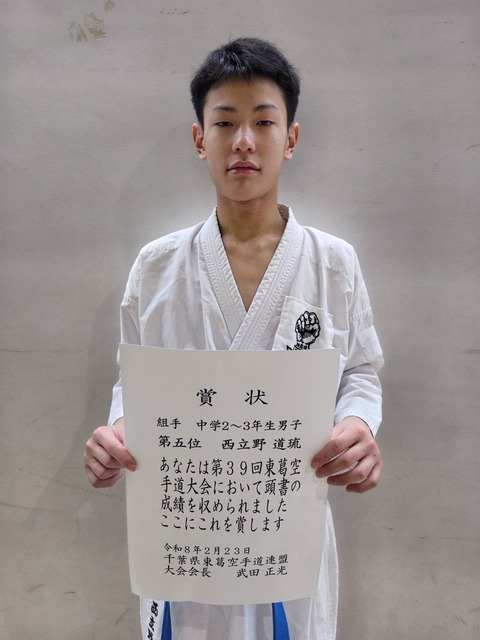 賞 状
組手 中学2～3年生男子
第五位 西立野 道琉
あなたは第39回東葛空
手道大会において頭書の
成績を収められました
ここにこれを賞します
令和8年2月23日
千葉県東葛空手道連盟
大会会長 武田 正光